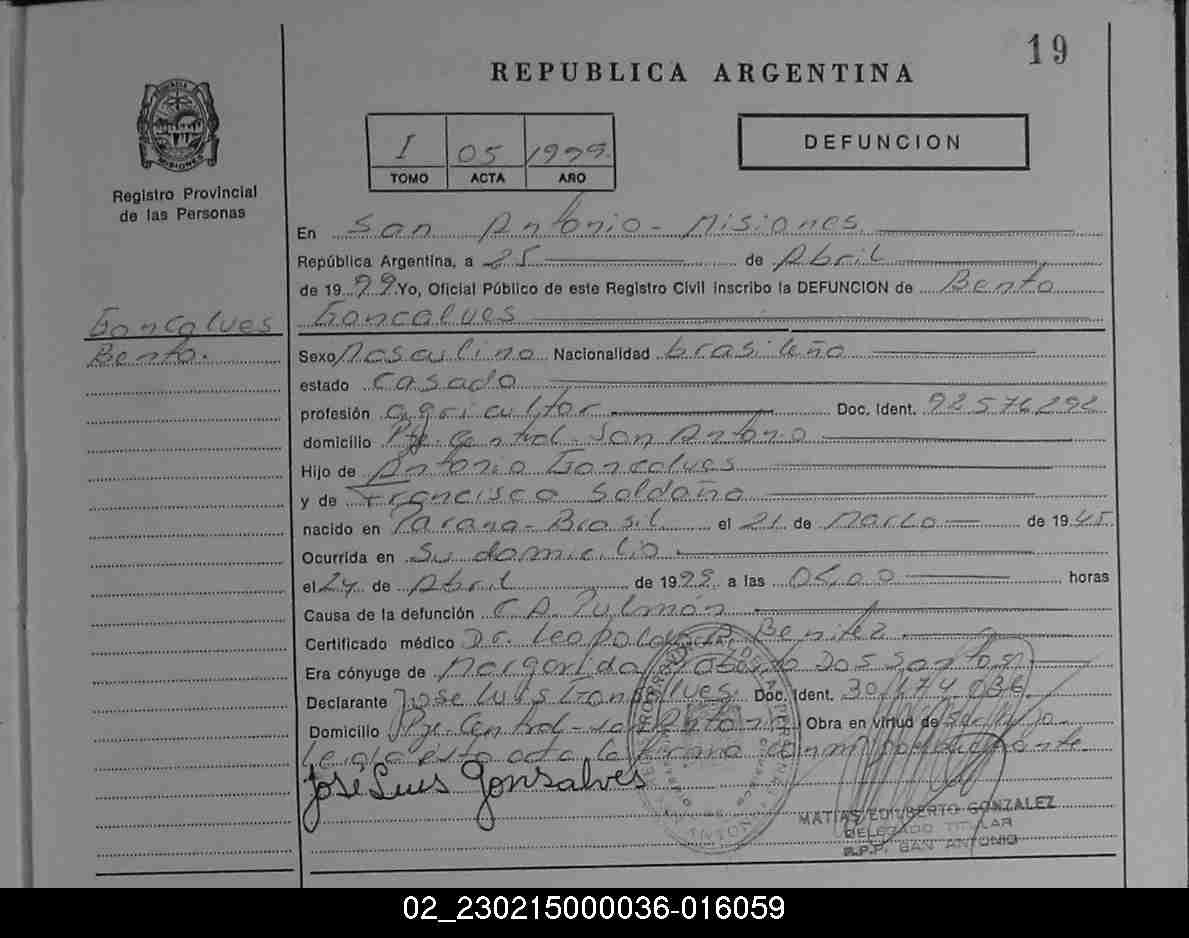 19
REPUBLICA ARGENTINA
I 05 1999.
TOMO ACTA AÑO
DEFUNCION
MISIONES
Registro Provincial
de las Personas
Goncalves
Bento.
En San Antonio - Misiones
República Argentina, a 25 de Abril
de 1999. Yo, Oficial Público de este Registro Civil inscribo la DEFUNCION de Bento
Goncalves
Sexo Masculino Nacionalidad brasileño
estado casado
profesión agricultor Doc. Ident. 92576292
domicilio Pje. Central San Antonio
Hijo de Antonio Goncalves
y de Francisca Saldaña
nacido en Parana - Brasil el 21 de Marzo de 1945
Ocurrida en su domicilio
el 24 de Abril de 1999 a las 05,00 horas
Causa de la defunción CA. Pulmón
Certificado médico Dr. Leopoldo Benitez
Era cónyuge de Margarida Dos Santos
Declarante Jose Luis Gonsalves Doc. Ident. 30.174.036
Domicilio Pje. Central - San Antonio Obra en virtud de Su hijo
Leida esta acta la firma conmigo
José Luis Gonsalves
MATIAS EDILBERTO GONZALEZ
DELEGADO TITULAR
R.P.P. SAN ANTONIO
02_230215000036-016059